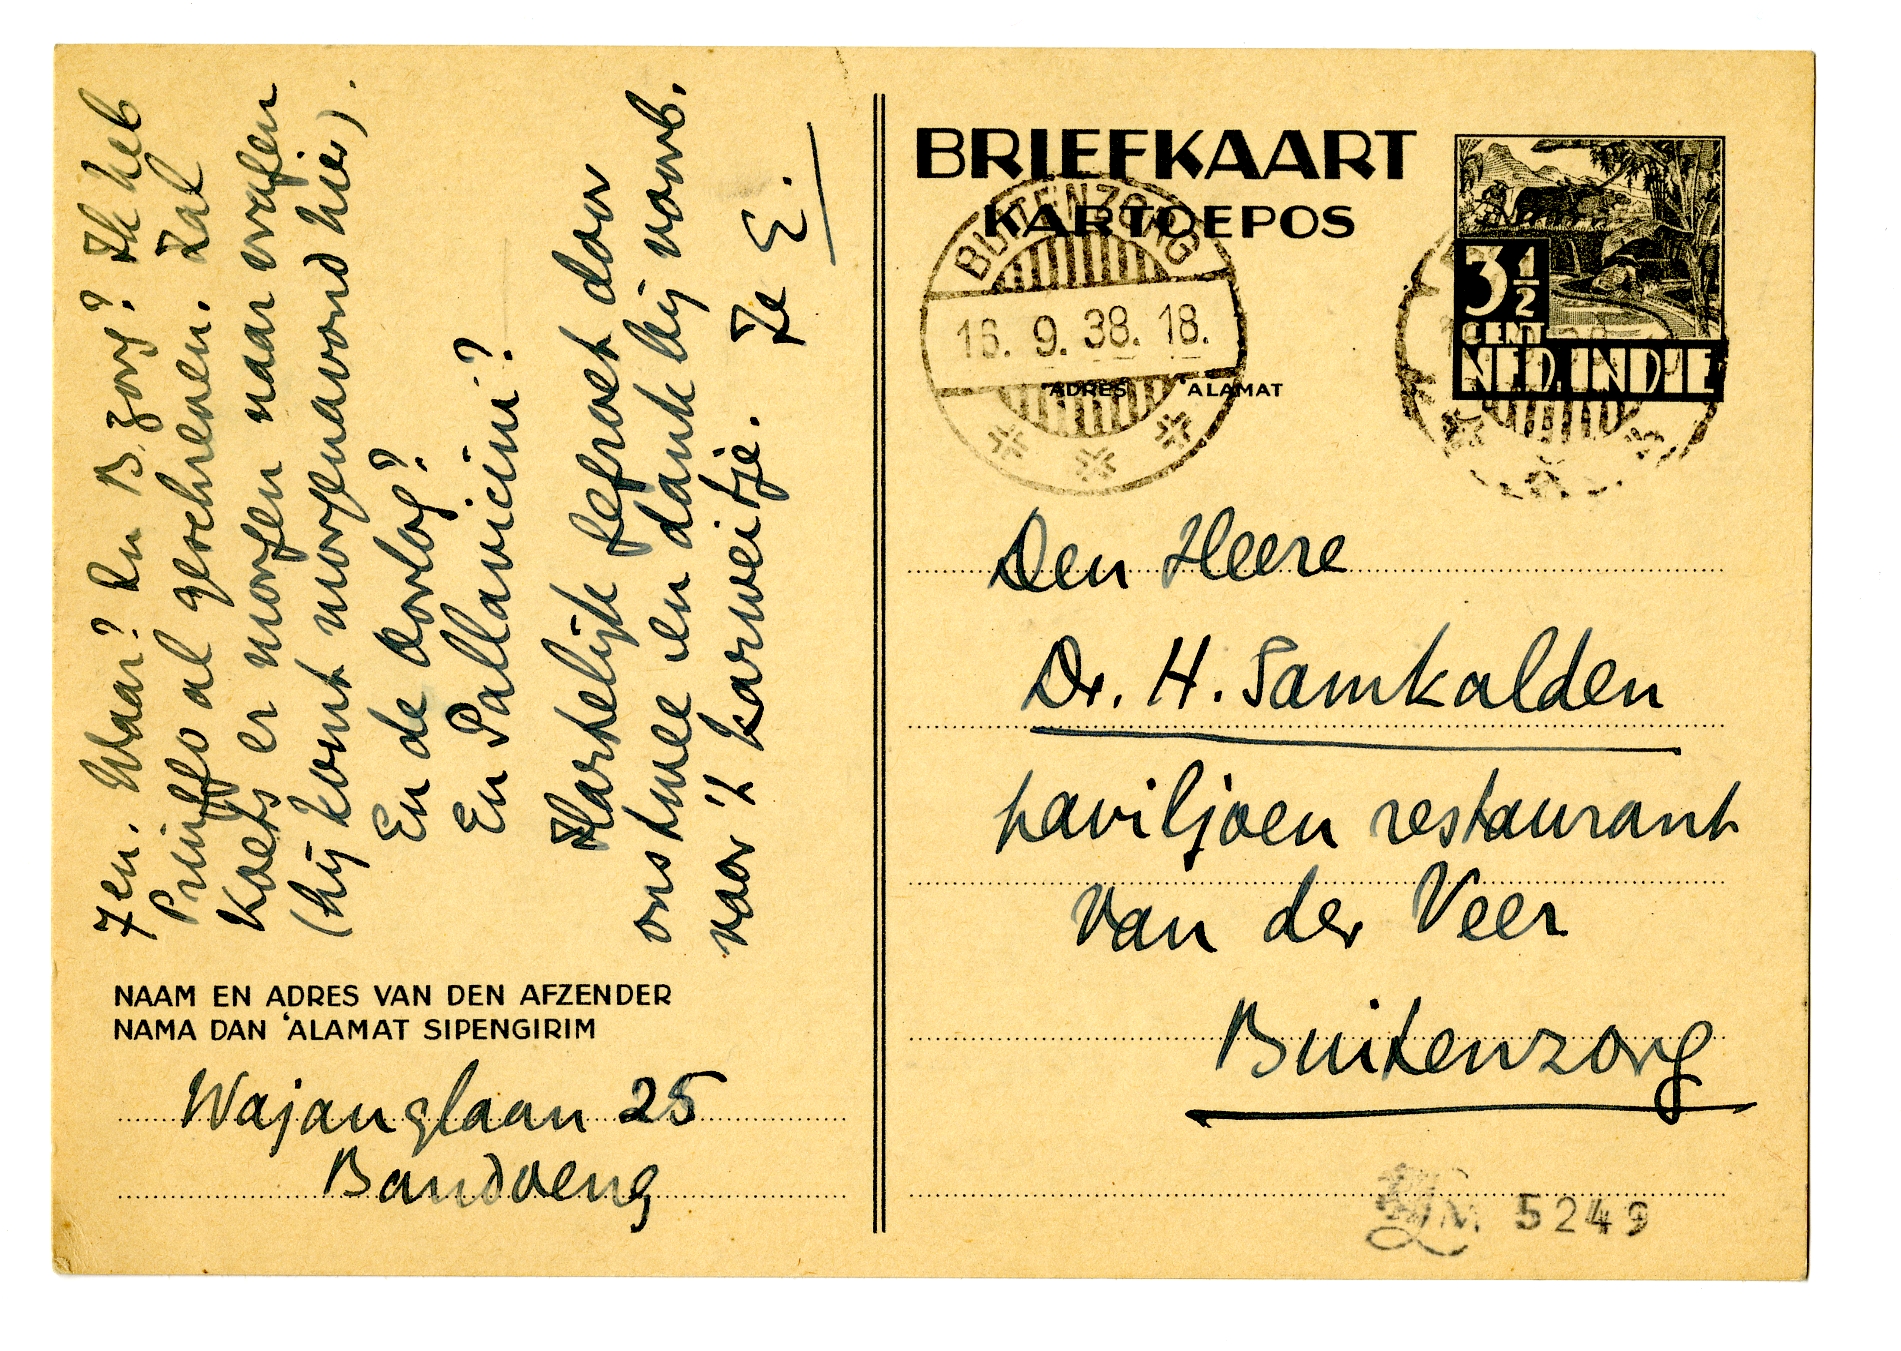 7en. Waar? In B.zorg? Ik heb
Pruiffs al geschreven. Zal
Koets er morgen naar vragen
(hij komt morgenavond hier).
En de oorlog?
En Pallavicini?
Hartelijk gegroet door
ons twee en dank bij voorb.
voor 't karweitje. Je E.
NAAM EN ADRES VAN DEN AFZENDER
NAMA DAN ʿALAMAT SIPENGIRIM
Wajanglaan 25
Bandoeng
BRIEFKAART
KARTOEPOS
BUITENZORG
16. 9. 38. 18.
ADRES ʿALAMAT
3½
CENT
NED. INDIE
Den Heere
Dr. H. Samkalden
paviljoen restaurant
van der Veer
Buitenzorg
5249